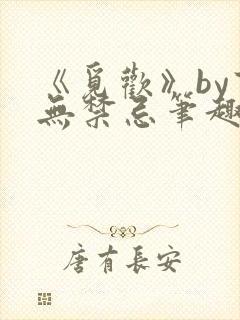 《覓歡》by
無禁忌筆趣
唐有長安